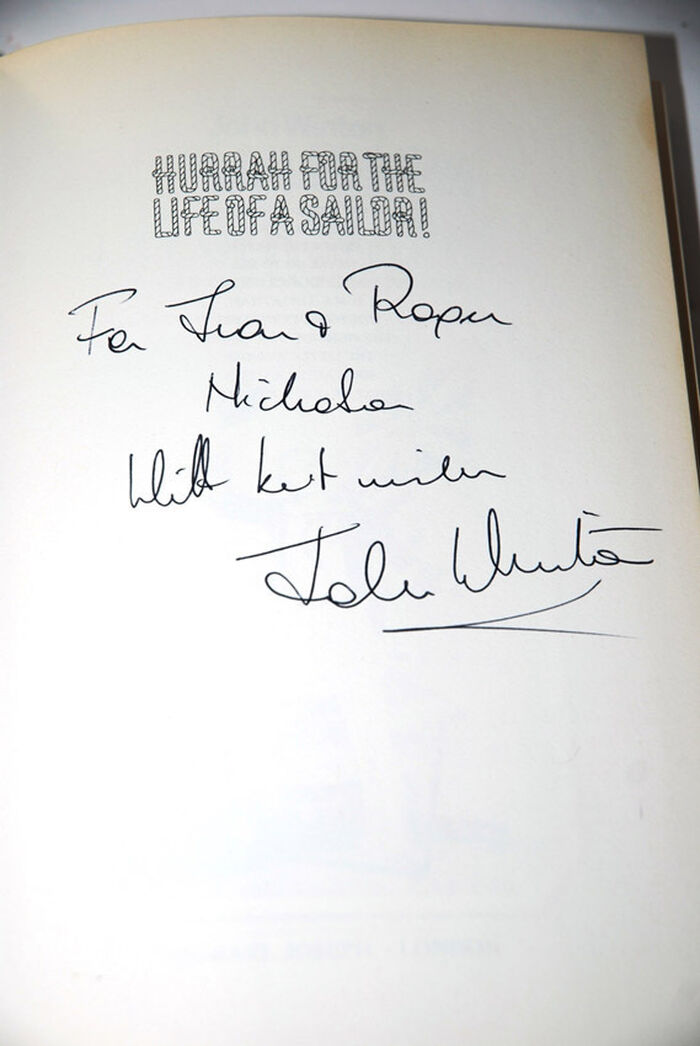 HURRAH FOR THE
LIFE OF A SAILOR!
For Joan & Roger
Nicholson
With best wishes
John Winton